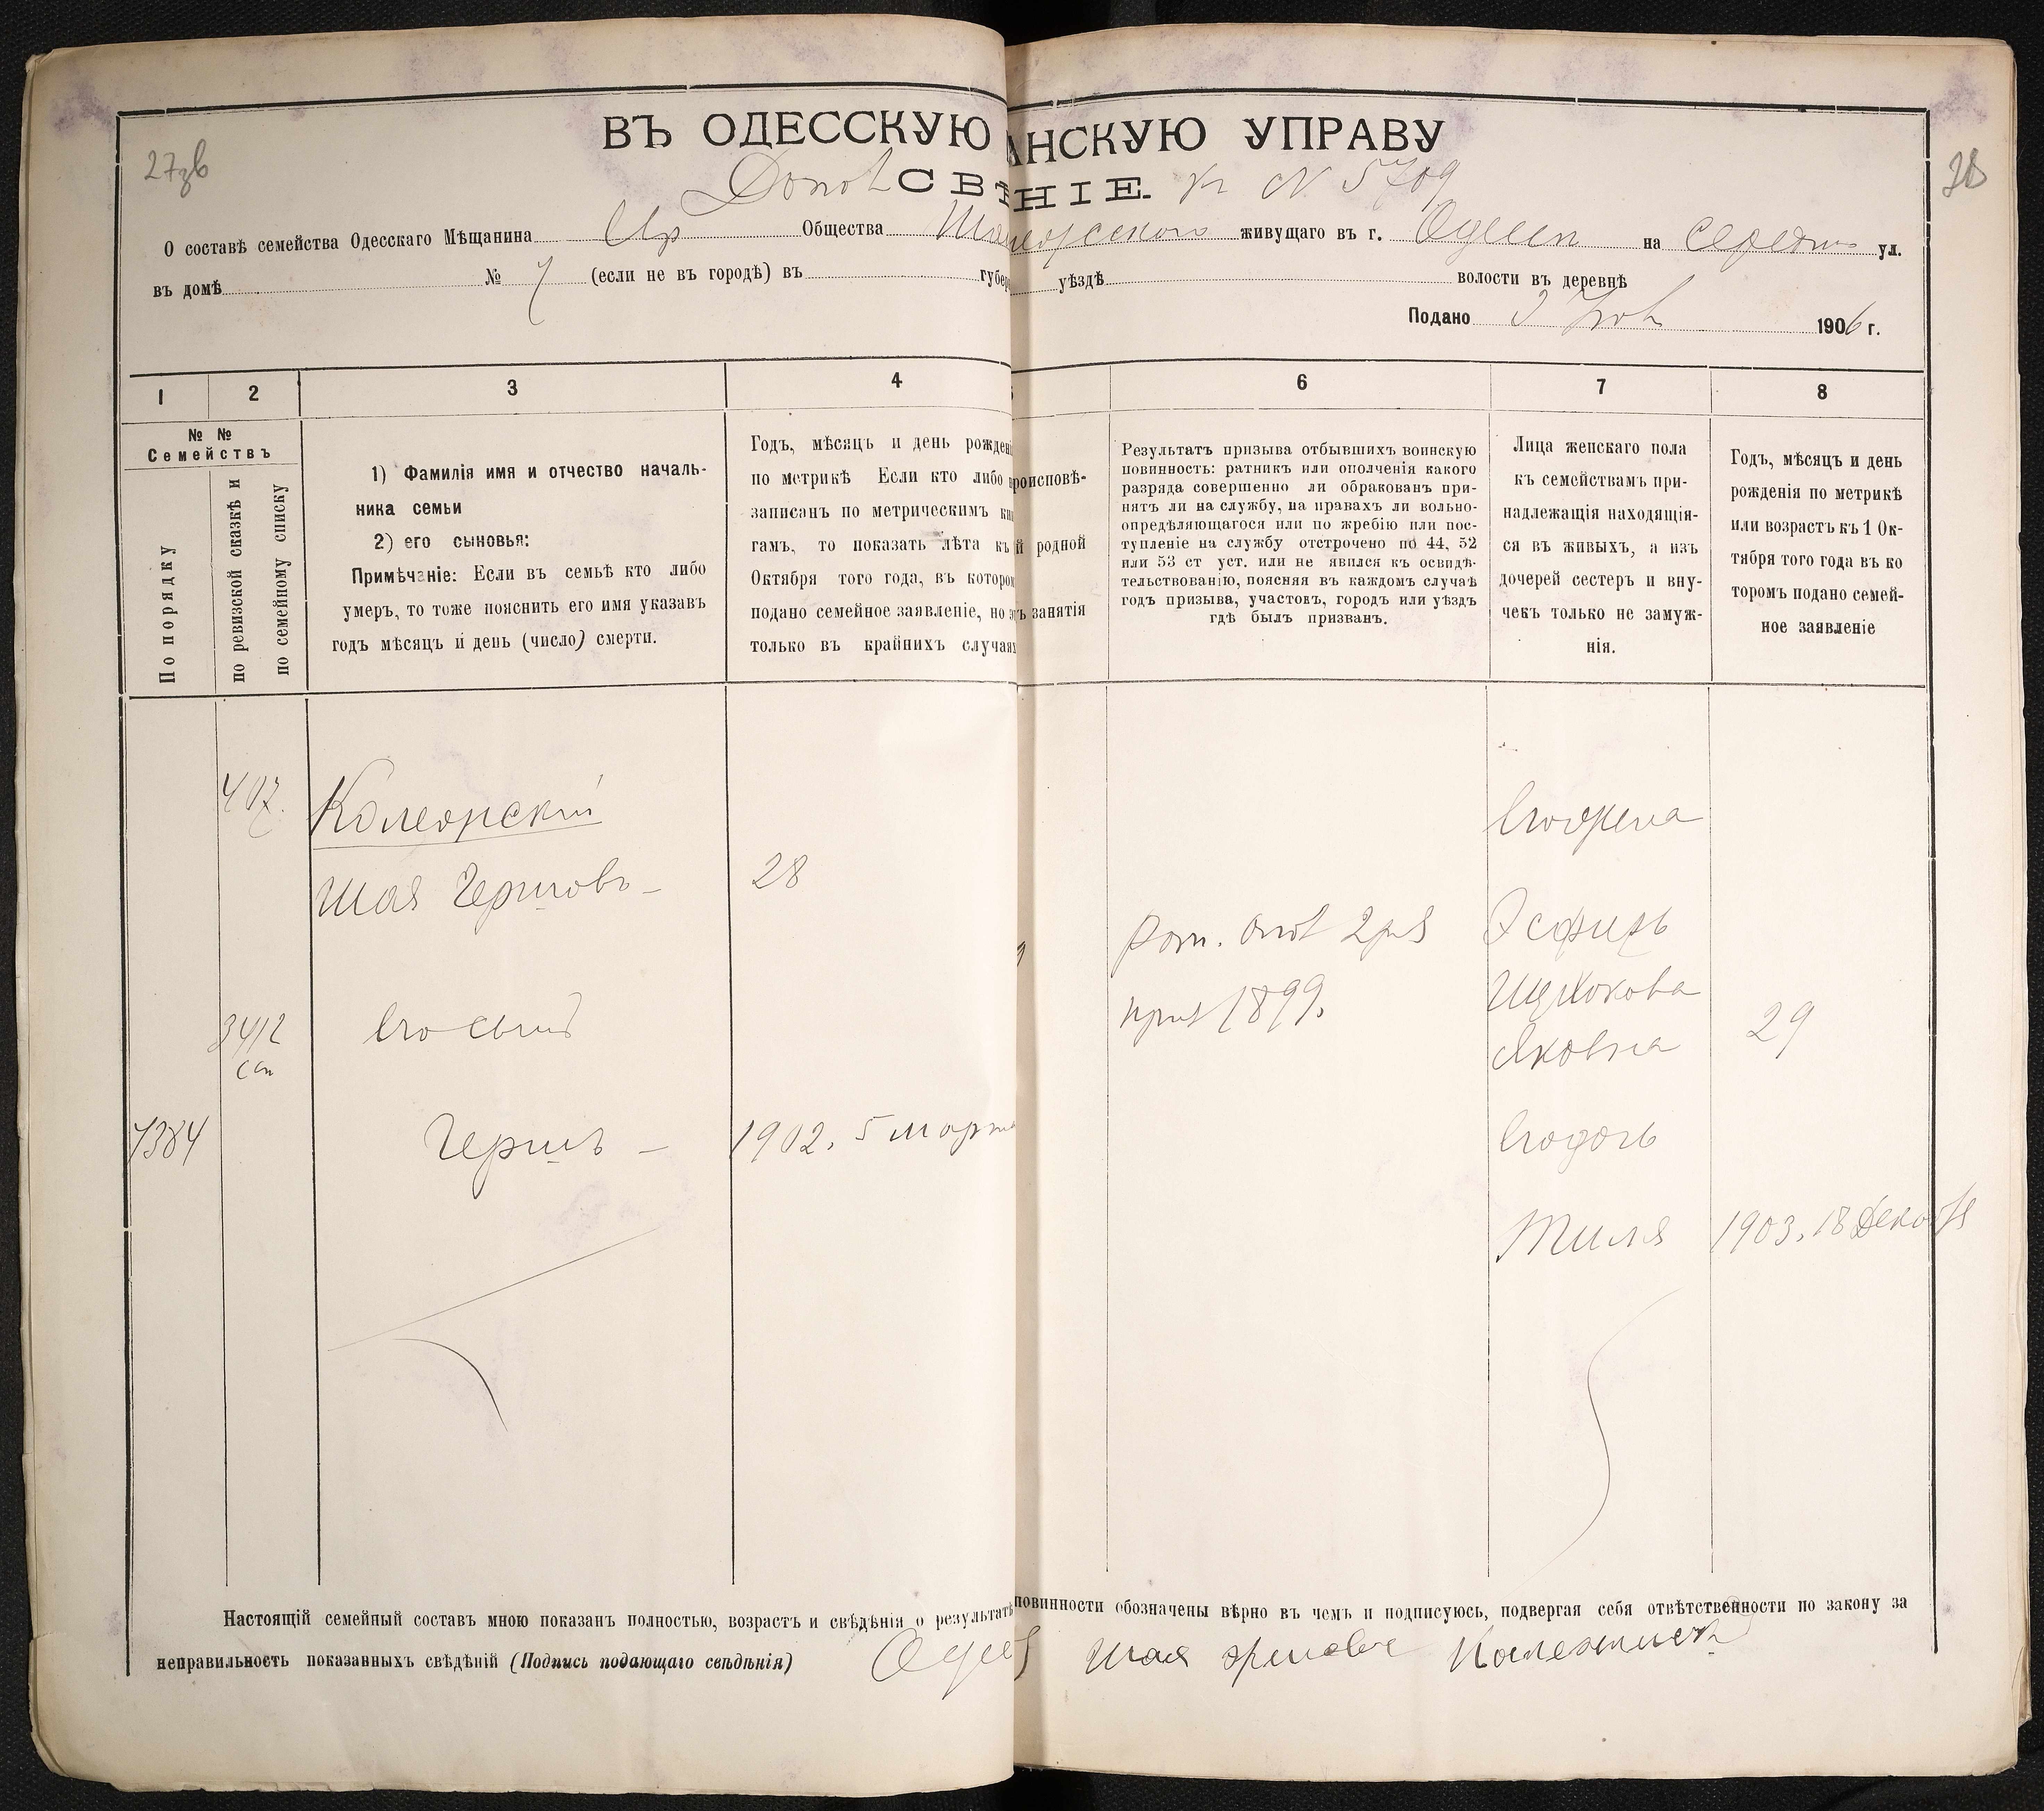 ВЪ ОДЕССКУЮ АНСКУЮ УПРАВУ
СВѢ НІЕ. № 5709
О составѣ семейства Одесскаго Мѣщанина Общества живущаго въ г. Одессѣ на ул.
въ домѣ № 7 (если не въ городѣ) въ губер уѣздѣ волости въ деревнѣ
Подано 3 1906 г.
1 2 3 4 6 7 8
№ №
Семействъ
По порядку
по ревизской сказкѣ и
по семейному списку
1) Фамилія имя и отчество началь-
ника семьи
2) его сыновья:
Примѣчаніе: Если въ семьѣ кто либо
умеръ, то тоже пояснить его имя указавъ
годъ мѣсяцъ и день (число) смерти.
Годъ, мѣсяцъ и день рожденi
по метрикѣ Если кто либо н
записанъ по метрическимъ кни
гамъ, то показать лѣта къ
Октября того года, въ которо
подано семейное заявленіе, но э
только въ крайнихъ случаях
роисповѣ-
й родной
ъ занятія
Результатъ призыва отбывшихъ воинскую
повинность: ратникъ или ополченія какого
разряда совершенно ли обракованъ при-
нятъ ли на службу, на правахъ ли вольно-
опредѣляющагося или по жребію или пос-
тупленіе на службу отсрочено по 44, 52
или 53 ст уст. или не явился къ освидѣ-
тельствованію, поясняя въ каждомъ случаѣ
годъ призыва, участокъ, городъ или уѣздъ
гдѣ былъ призванъ.
Лица женскаго пола
къ семействамъ при-
надлежащія находящія-
ся въ живыхъ, а изъ
дочерей сестеръ и вну-
чекъ только не замуж-
нія.
Годъ, мѣсяцъ и день
рожденія по метрикѣ
или возрастъ къ 1 Ок-
тября того года въ ко
торомъ подано семей-
ное заявленіе
407.
Шая Гершовъ — 28
3412
сп
Его сынъ
7384 Гершъ — 1902. 5 марта
Рат. опол 2 рз
приз 1899.
Его жена
Эсфирь
Яковна
29
Его дочь
Тиля 1903. 18 Декабря
Настоящій семейный составъ мною показанъ полностью, возрастъ и свѣдѣнія о результатѣ повинности обозначены вѣрно въ чемъ и подписуюсь, подвергая себя отвѣтственности по закону за
неправильность показанныхъ свѣдѣній (Подпись подающаго свѣдѣнія) Шая